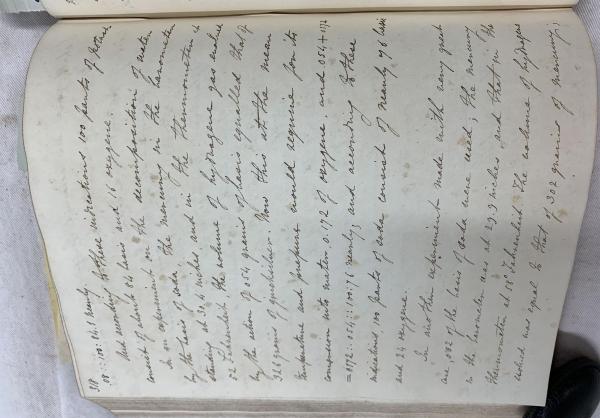 .08 :: 100 : 84.3 nearly.
And according to these indications 100 parts of potash
consist of about 84 basis and 16 oxygene.
In an experiment on the decomposition of water
by the basis of soda the mercury in the barometer
standing at 30.4 inches and in the thermometer at
52 Fahrenheit, the volume of hydrogene gas evolved
by the action of .054 grains of basis equalled that of
326 grains of quicksilver. Now this at the mean
temperature and pressure would require for its
conversion into water 0.172 of oxygene, and .054 +
= 0172 : .054 :: 100 : 76 nearly; and according to these
indications, 100 parts of soda consist of nearly 76 basis
and 24 oxygene.
In another experiment made with very great
care, .052 of the basis of soda were used; the mercury
in the barometer was at 29.9 inches and that in the
thermometer at 58° Fahrenheit. The volume of hydrogene
evolved was equal to that of 302 grains of mercury;